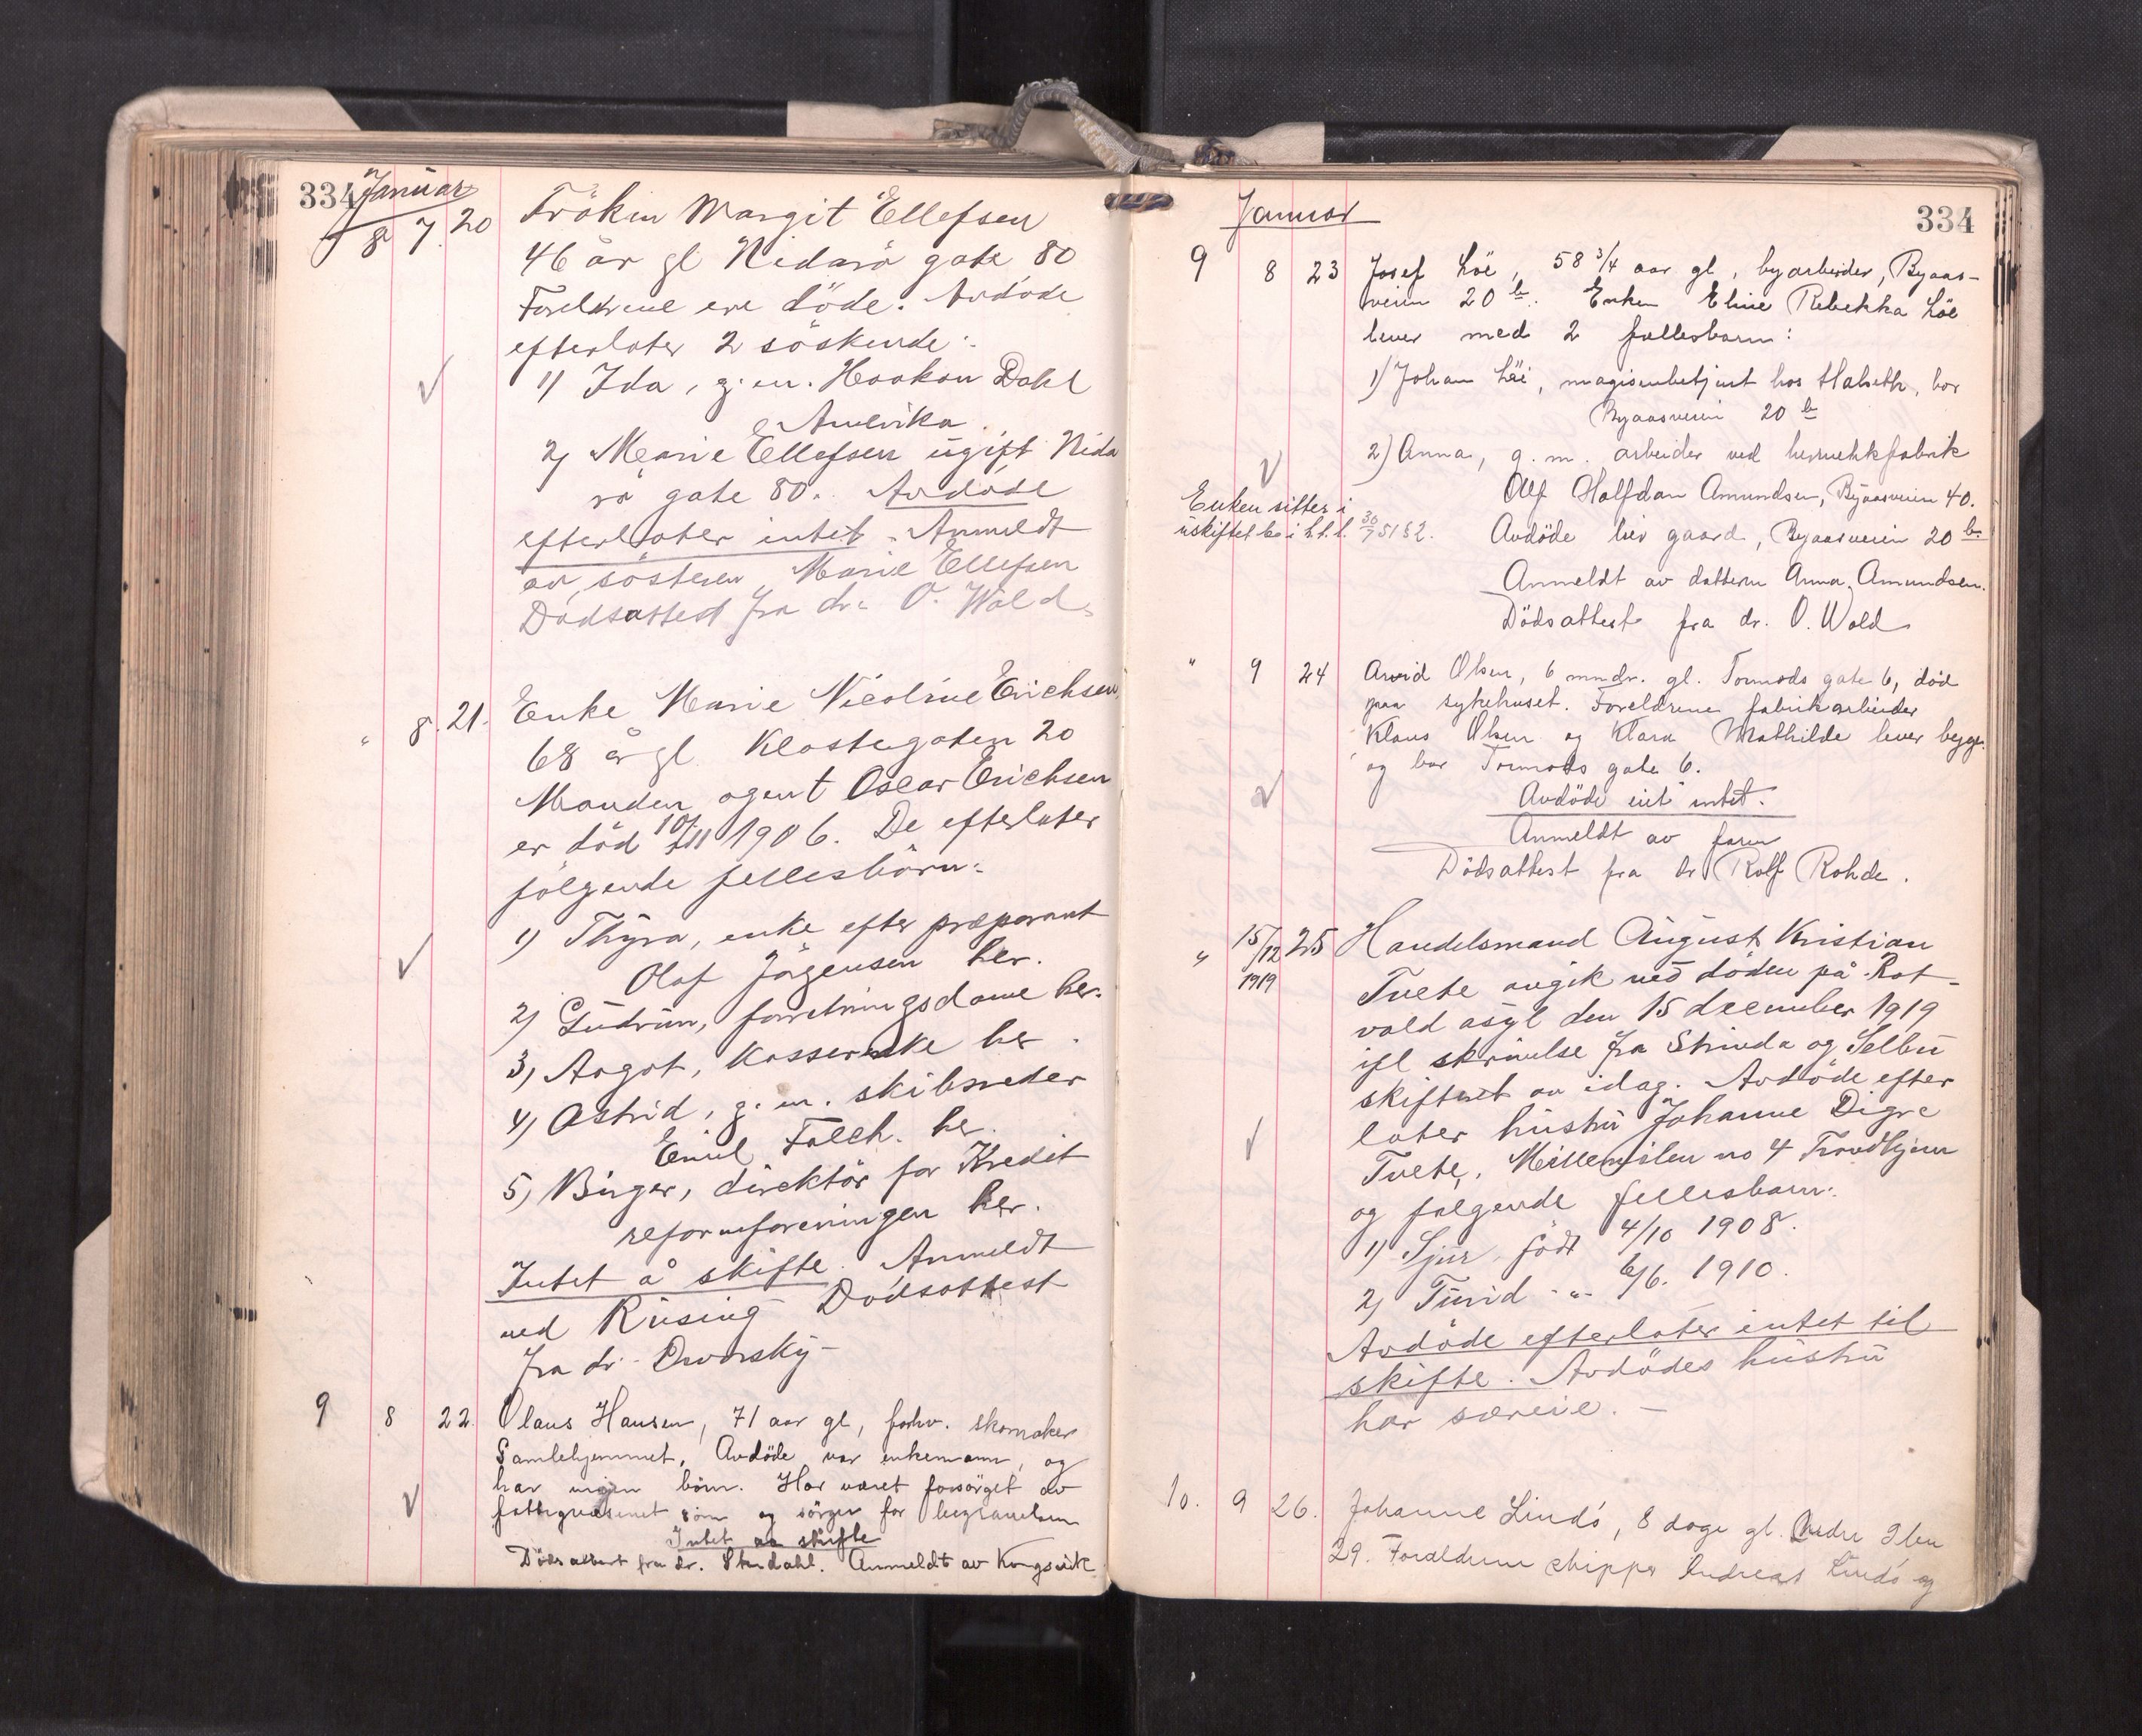 334 Januar
8 7. 20 Frøken Margit Ellefsen
46 år gl Nidarø gate 80
Foreldrene ere döde. Avdöde
efterlater 2 söskende:
1) Ida, g. m. Haakon Dahl
Amerika
2) Marie Ellefsen ugift Nida
rö gate 80. Avdöde
efterlater intet. Anmeldt
av söstren Marie Ellefsen
Dödsattest fra dr. O. Wold
" 8. 21. Enke Marie Nicoline Erichsen
68 år gl Klostergaten 20
Manden agent Oscar Erichsen
er död 10/11 1906. De efterlater
fölgende fellesbörn:
1) Thyra, enke efter preparant
Olaf Jörgensen her.
2) Gudrun, forretningsdame her.
3) Aagot, kasserske her.
4) Astrid, g. m. skibsreder
Emil Falch. her.
5) Birger, direktör for Kredit
reformforeningen her.
Intet å skifte. Anmeldt
ved Rusing Dödsattest
fra dr. Dworsky
9 8 22. Olaus Hansen, 71 aar gl, forhv. skomaker
Gamlehjemmet. Avdöde var enkemann, og
har ingen börn. Har været forsörget av
fattigvæsenet som og sörger for begravelsen
Intet aa skifte
Dödsattest fra dr. Stendahl. Anmeldt av Kongsvik
Januar 334
9 8 23 Josef Löe, 58 3/4 aar gl, byarbeider, Byaas-
veien 20 b. Enken Eline Rebekka Löe
lever med 2 fællesbarn:
1) Johan Löe, magasinbetjent hos Halseth, bor
Byaasveien 20 b
2) Anna, g. m. arbeider ved
Olf Halfdan Amundsen, Byaasveien 40.
Enken sitter i
uskiftet bo i h.t.l. 30/7 51 § 2. Avdöde eier gaard, Byaasveien 20 b.
Anmeldt av datteren Anna Amundsen.
Dödsattest fra dr. O. Wold
" 9 24 Arvid Olsen, 6 mndr. gl. Tormods gate 6, död
paa sykehuset. Foreldrene fabrikarbeider
Klaus Olsen og Klara Mathilde lever begge
og bor Tormods gate 6.
Avdöde eiet intet.
Anmeldt av faren
Dödsattest fra dr Rolf Rohde.
" 15/12 1919 25 Handelsmand August Kristian
Tvete avgik ved döden på Rot-
vold asyl den 15 december 1919
ifl skrivelse fra Strinda og Selbu
skifteret av idag. Avdöde efter
later hustru Johanne Digre
Tvete, Mellemilen no 4 Trondhjem
og følgende fellesbarn:
1) Sjur, födt 4/10 1908.
2) Turid -"- 6/6. 1910.
Avdöde efterlater intet til
skifte. Avdödes hustru
har særeie. -
10. 9 26. Johanne Lindö, 8 dage gl. Nedre Ilen
29. Foreldrene skipper Andreas Lindö og